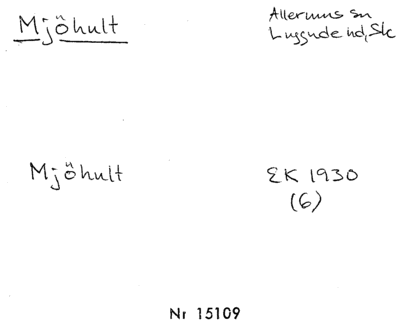 Mjöhult
Allerums sn
Luggude hd, Sk
Mjöhult
EK 1930
(6)
Nr 15109